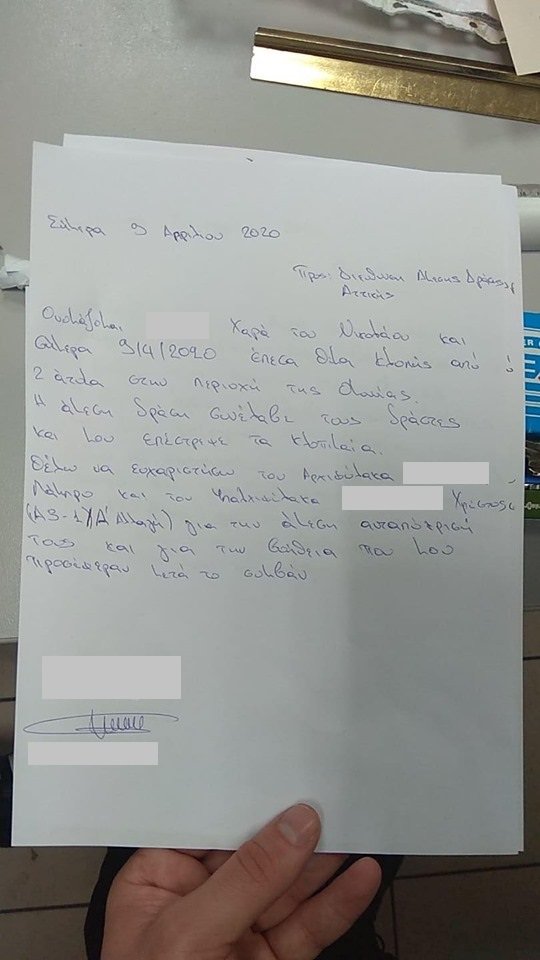 Σήμερα 9 Απριλίου 2020
Προς: Διεύθυνση Άμεσης Δράσης
Αττικής
Ονομάζομαι Χαρά του Νικολάου και
σήμερα 9/4/2020 έπεσα θύμα κλοπής από
2 άτομα στην περιοχή της Ομόνοιας.
Η άμεση δράση συνέλαβε τους δράστες
και μου επέστρεψε τα κλοπιμαία.
Θέλω να ευχαριστήσω τον Αρχιφύλακα
Λάμπρο και τον Υπαρχιφύλακα Χρίστος
(ΑΣ-1/Α' Αλλαγή) για την άμεση ανταπόκρισή
τους και για την βοήθεια που μου
προσέφεραν μετά το συμβάν